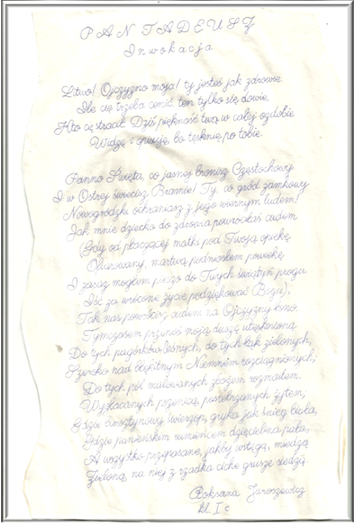 PAN TADEUSZ
Inwokacja
Litwo! Ojczyzno moja! ty jesteś jak zdrowie.
Ile cię trzeba cenić, ten tylko się dowie,
Kto cię stracił. Dziś piękność twą w całej ozdobie
Widzę i opisuję, bo tęsknię po tobie.
Panno Święta, co jasnej bronisz Częstochowy
I w Ostrej świecisz Bramie! Ty, co gród zamkowy
Nowogródzki ochraniasz z jego wiernym ludem!
Jak mnie dziecko do zdrowia powróciłaś cudem
Gdy od płaczącej matki pod Twoją opiekę
Ofiarowany, martwą podniosłem powiekę
I zaraz mogłem pieszo do Twych świątyń progu
Iść za wrócone życie podziękować Bogu),
Tak nas powrócisz cudem na Ojczyzny łono.
Tymczasem przenoś moją duszę utęsknioną
Do tych pagórków leśnych, do tych łąk zielonych,
Szeroko nad błękitnym Niemnem rozciągnionych;
Do tych pól malowanych zbożem rozmaitem
Wyzłacanych pszenicą, posrebrzanych żytem,
Gdzie bursztynowy świerzop, gryka jak śnieg biała,
Gdzie panieńskim rumieńcem dzięcielina pała,
A wszystko przepasane, jakby wstęgą, miedzą
Zieloną, na niej z rzadka ciche grusze siedzą
Roksana Jaroszewicz
kl. I c